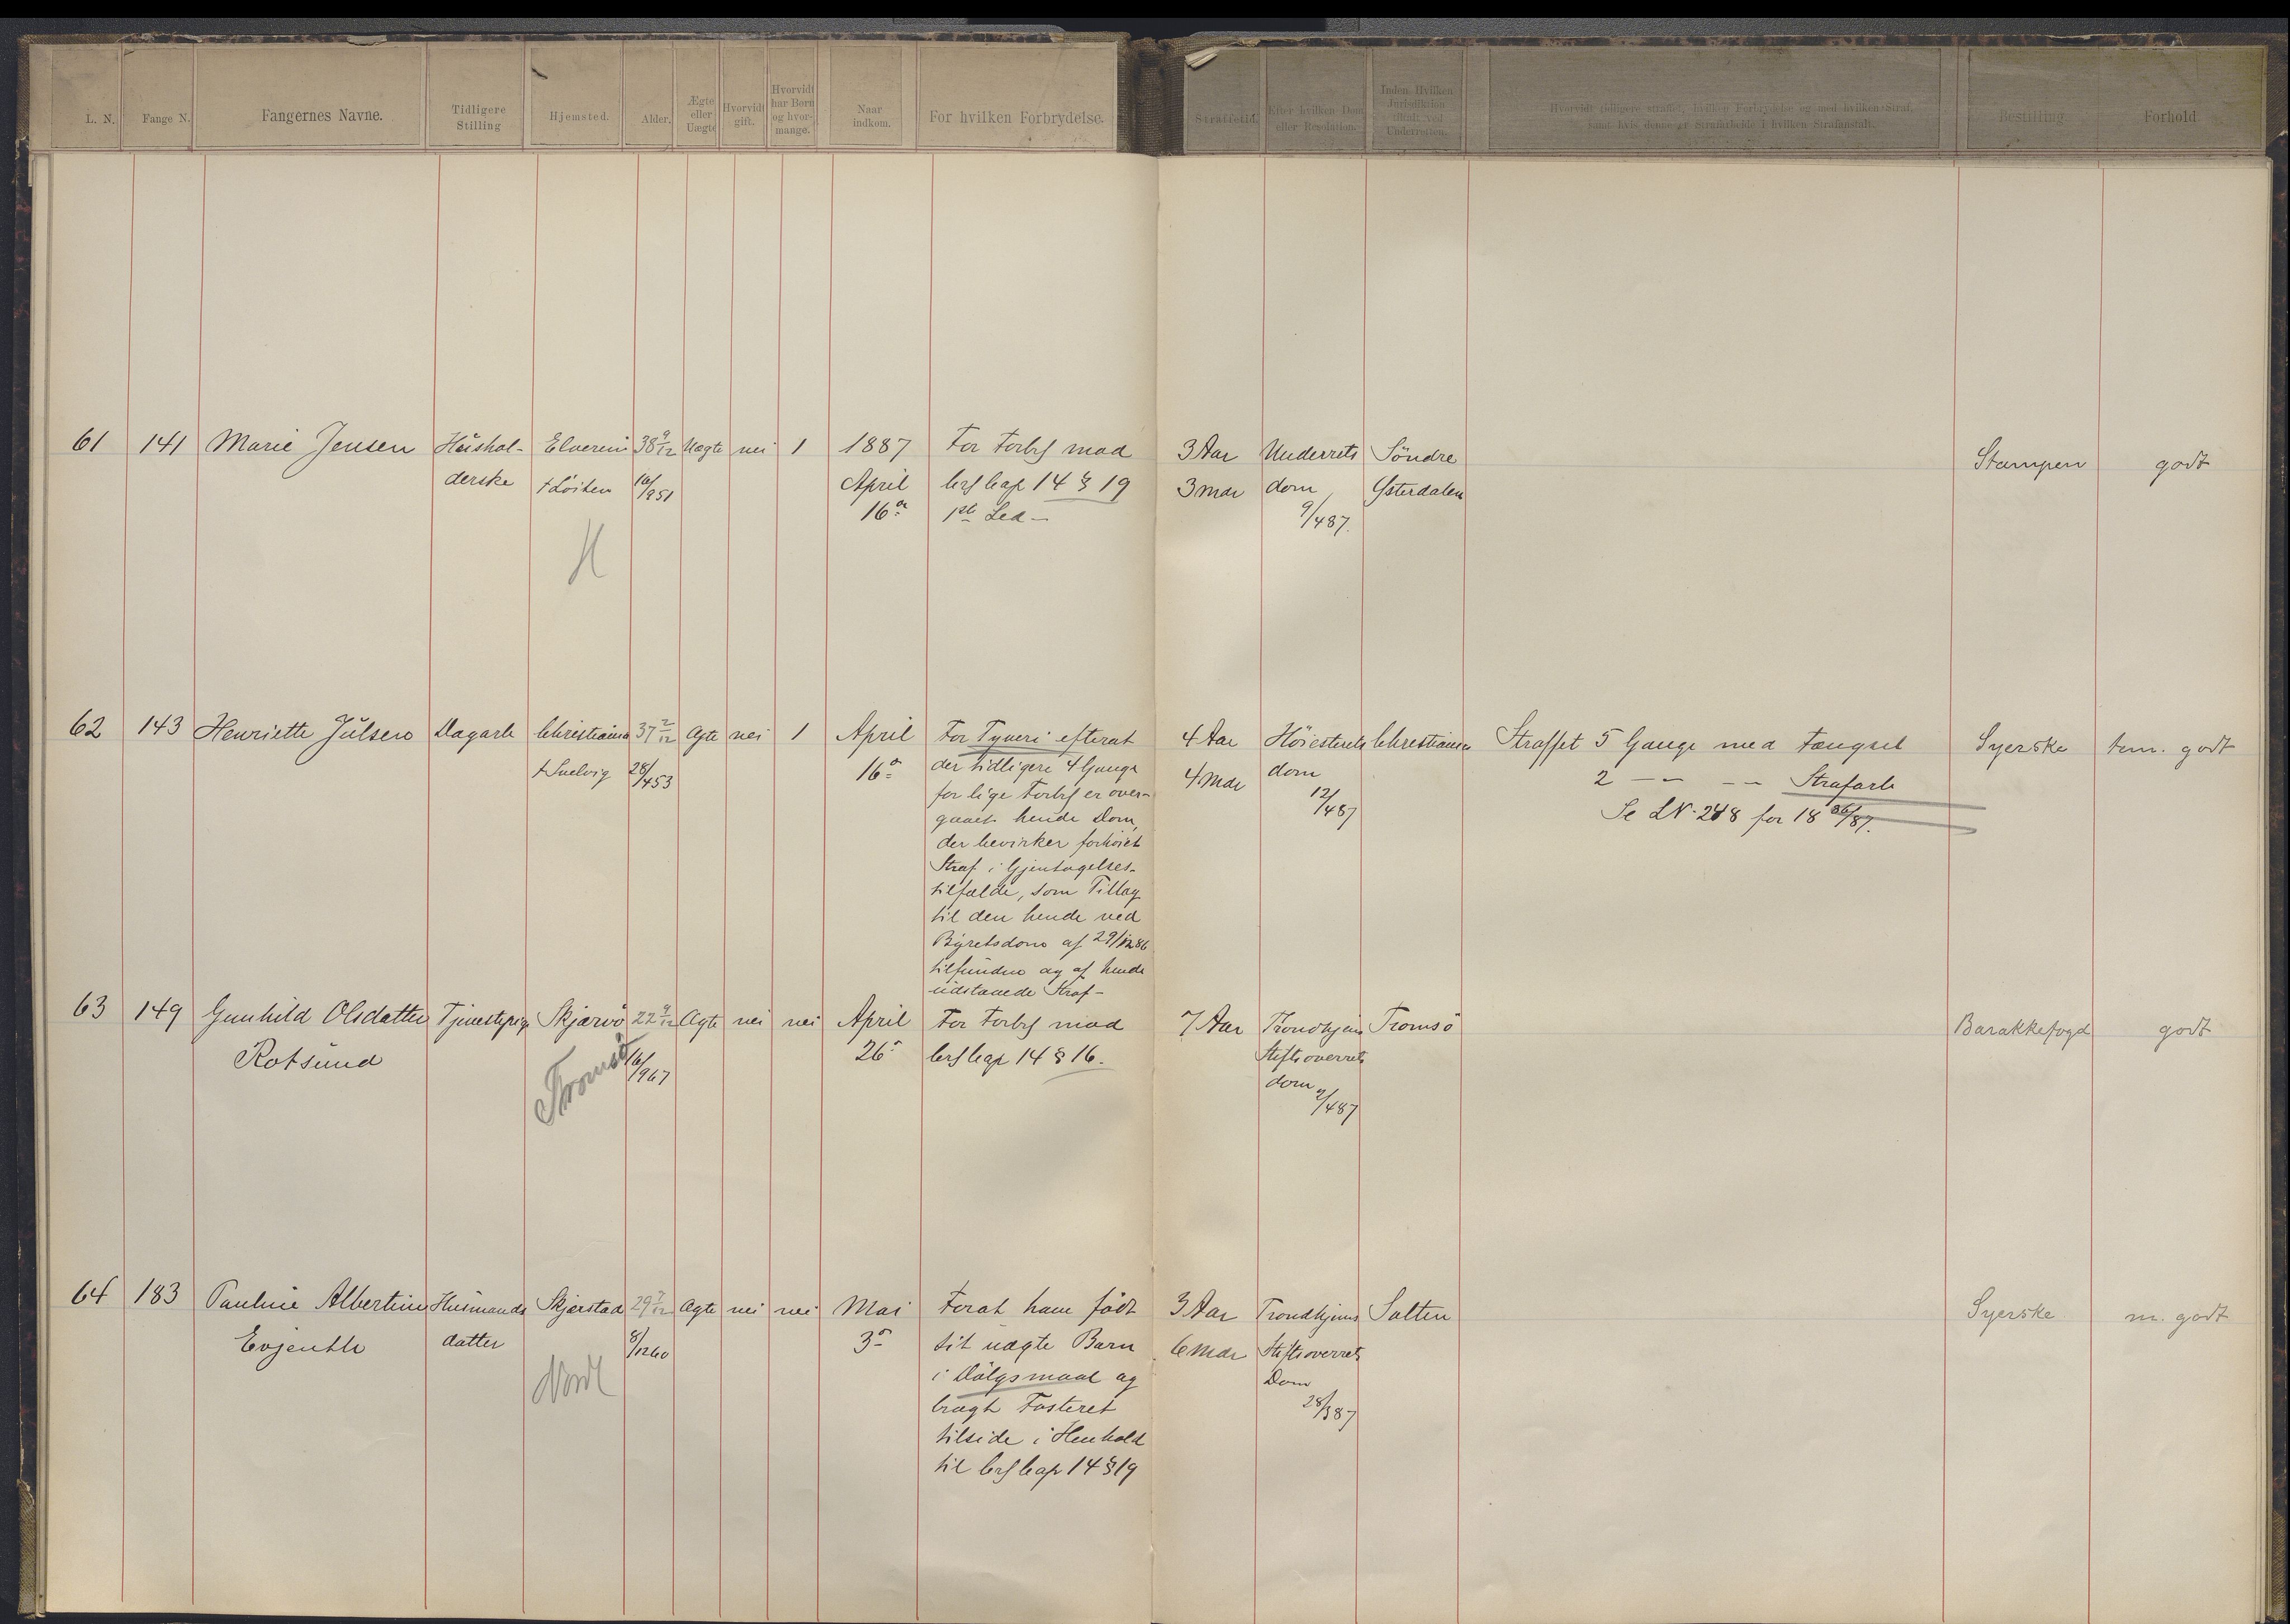 L. N.
Fange N.
Fangernes Navne.
Tidligere
Stilling
Hjemsted.
Alder.
Ægte
eller
Uægte
Hvorvidt
gift.
Hvorvidt
har Børn
og hvor-
mange.
Naar
indkom.
For hvilken Forbrydelse.
Straffetid.
Efter hvilken Dom
eller Resolution.
Inden Hvilken
Jurisdiktion
tiltalt ved
Underretten.
Hvorvidt tidligere straffet, hvilken Forbrydelse og med hvilken Straf,
samt hvis denne er Strafarbeide i hvilken Strafanstalt.
Bestilling
Forhold
61 141 Marie Jensen Hüshol- Elverum 38 9/12 Uægte nei 1 1887 For Forbf mod 3 Aar Underrets Söndre Stampen godt
derske f Löiten 16/9 51 April Crf Cap 14 § 19 3 mdr dom Ysterdalen
16de 1ste Led - 9/4 87.
H
62 143 Henriette Jülsen Dagarb Christiania 37 2/12 Ægte nei 1 April For Tyveri efterat 4 Aar Höiesterets Christiania Straffet 5 Gange med Fængsel Syerske tem. godt
f Svelvig 28/4 53 16de der tidligere 4 Gange 4 mdr dom 2 — — Strafarb
for lige Forbf er over- 12/4 87 Se LN. 248 for 1886/87.
gaaet hende Dom,
der bevirker forhöiet
Straf i Gjentagelses-
tilfælde, som Tillæg
til den hende ved
Byretsdom af 29/12 86
tilfundne og af hende
udstaaede Straf -
63 149 Gunhild Olsdatter Tjenestepige Skjærvö 22 9/12 Ægte nei nei April For Forbf mod 7 Aar Trondhjems Tromsö Barakkefogd godt
Rotsund 16/9 67 26de Crf Cap 14 § 16. Stiftsoverrets
Tromsö dom
2/4 87
64 183 Pauline Albertine Husmands Skjerstad 29 7/12 Ægte nei nei Mai Forat have födt 3 Aar Trondhjems Salten Syerske m. godt
Evjenth datter 8/12 60 3de sit uægte Barn 6 mdr Stiftsoverrets
Nord i Dölgsmaal og Dom
bragt Fosteret 28/3 87
tilside i Henhold
til Crf Cap 14 § 19